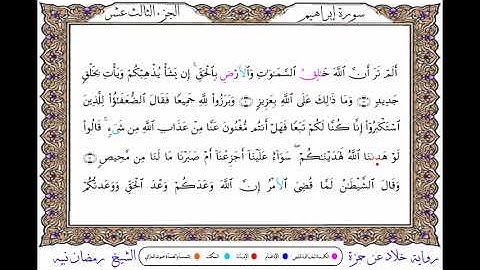 سورة إبراهيم
الجزء الثالث عشر
أَلَمْ تَرَ أَنَّ اللَّهَ خَٰلِقُ السَّمَٰوَٰتِ وَالْأَرْضِ بِالْحَقِّ ۚ إِن يَشَأْ يُذْهِبْكُمْ وَيَأْتِ بِخَلْقٍ
جَدِيدٍ وَمَا ذَٰلِكَ عَلَى اللَّهِ بِعَزِيزٍ وَبَرَزُوا۟ لِلَّهِ جَمِيعًا فَقَالَ الضُّعَفَٰٓؤُا۟ لِلَّذِينَ
اسْتَكْبَرُوٓا۟ إِنَّا كُنَّا لَكُمْ تَبَعًا فَهَلْ أَنتُم مُّغْنُونَ عَنَّا مِنْ عَذَابِ اللَّهِ مِن شَىْءٍ ۚ قَالُوا۟
لَوْ هَدَىٰنَا اللَّهُ لَهَدَيْنَٰكُمْ ۖ سَوَآءٌ عَلَيْنَآ أَجَزِعْنَآ أَمْ صَبَرْنَا مَا لَنَا مِن مَّحِيصٍ
وَقَالَ الشَّيْطَٰنُ لَمَّا قُضِىَ الْأَمْرُ إِنَّ اللَّهَ وَعَدَكُمْ وَعْدَ الْحَقِّ وَوَعَدتُّكُمْ
رواية خلاد عن حمزة
الشيخ رمضان نبيه